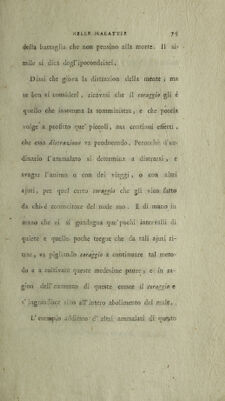 NELLE MALATTIE 75
della battaglia che non pensino alla morte. Il si-
mile si dica degl'ipocondriaci.
Dissi che giova la distrazion della mente; ma
se ben si consideri, ricavasi che il coraggio gli è
quello che insomma la somministra, e che poscia
volge a profitto que' piccoli, ma continui effetti,
che essa distrazione va producendo. Perocchè d'or-
dinario l'ammalato si determina a distrarsi, e
svagar l'animo o con dei viaggi, o con altri
ajuti, per quel certo coraggio che gli vien fatto
da chi è conoscitore del male suo. E di mano in
mano che ei si guadagna que' pochi intervalli di
quiete e quelle poche tregue che da tali ajuti ri-
trae, va pigliando coraggio a continuare tal meto-
do o a coltivare queste medesime paure; e in ra-
gion dell'aumento di queste cresce il coraggio e
s'ingrandisce sino all'intero abolimento del male.
L'esempio addimo è d'altri ammalati di questo